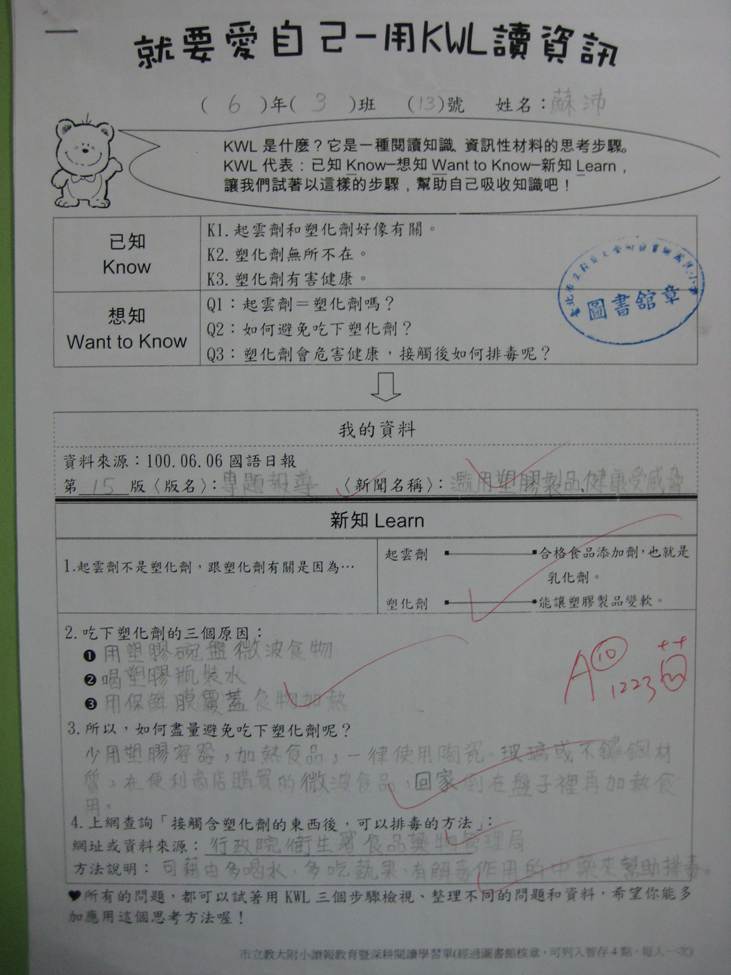 就要愛自己-用KWL讀資訊
( 6 )年( 3 )班 (13)號 姓名:蘇沛
KWL 是什麼?它是一種閱讀知識、資訊性材料的思考步驟。
KWL 代表:已知 Know-想知 Want to Know-新知 Learn,
讓我們試著以這樣的步驟,幫助自己吸收知識吧!
已知
Know
K1.起雲劑和塑化劑好像有關。
K2.塑化劑無所不在。
K3.塑化劑有害健康。
想知
Want to Know
Q1:起雲劑=塑化劑嗎?
Q2:如何避免吃下塑化劑?
Q3:塑化劑會危害健康,接觸後如何排毒呢?
圖書館章
我的資料
資料來源:100.06.06 國語日報
第 15 版〈版名〉:專題報導 〈新聞名稱〉:濫用塑膠製品,健康受威脅
新知 Learn
1.起雲劑不是塑化劑,跟塑化劑有關是因為…
起雲劑 合格食品添加劑,也就是
乳化劑。
塑化劑 能讓塑膠製品變軟。
2.吃下塑化劑的三個原因:
❶用塑膠碗盤微波食物
❷喝塑膠瓶裝水
❸用保鮮膜覆蓋食物加熱
A 10 ++
1223
3.所以,如何盡量避免吃下塑化劑呢?
少用塑膠容器,加熱食品,一律使用陶瓷、玻璃或不鏽鋼材
質,在便利商店購買的微波食品,回家倒在盤子裡再加熱食
用。
4.上網查詢「接觸含塑化劑的東西後,可以排毒的方法」:
網址或資料來源:行政院衛生署食品藥物管理局
方法說明:可藉由多喝水、多吃蔬果、有 作用的中藥來幫助排毒。
♥所有的問題,都可以試著用 KWL 三個步驟檢視、整理不同的問題和資料,希望你能多
加應用這個思考方法喔!
市立教大附小讀報教育暨深耕閱讀學習單(經過圖書館核章,可列入暫存 4 點,每人一次)